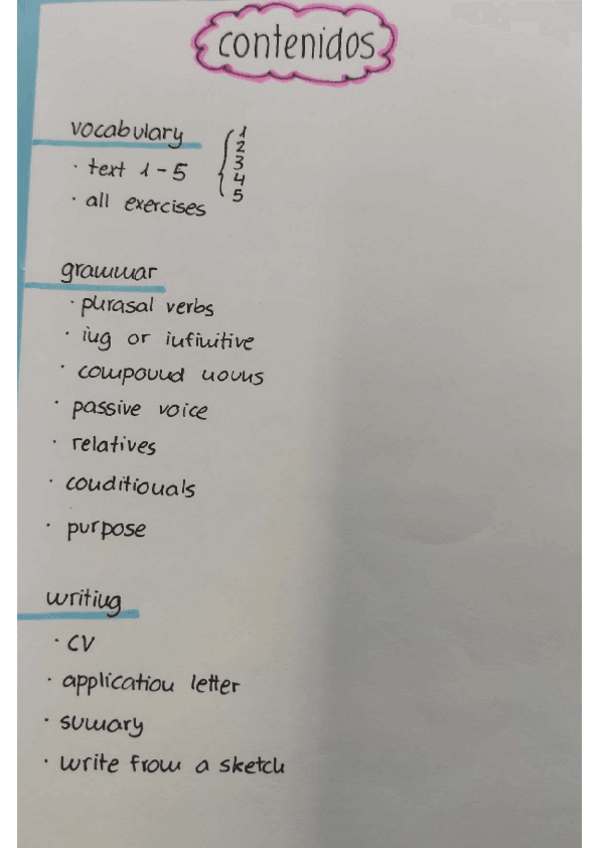 contenidos
vocabulary
· text 1-5 { 1 2 3 4 5
· all exercises
grammar
· phrasal verbs
· ing or infinitive
· compound nouns
· passive voice
· relatives
· conditionals
· purpose
writing
· CV
· application letter
· sumary
· write from a sketch